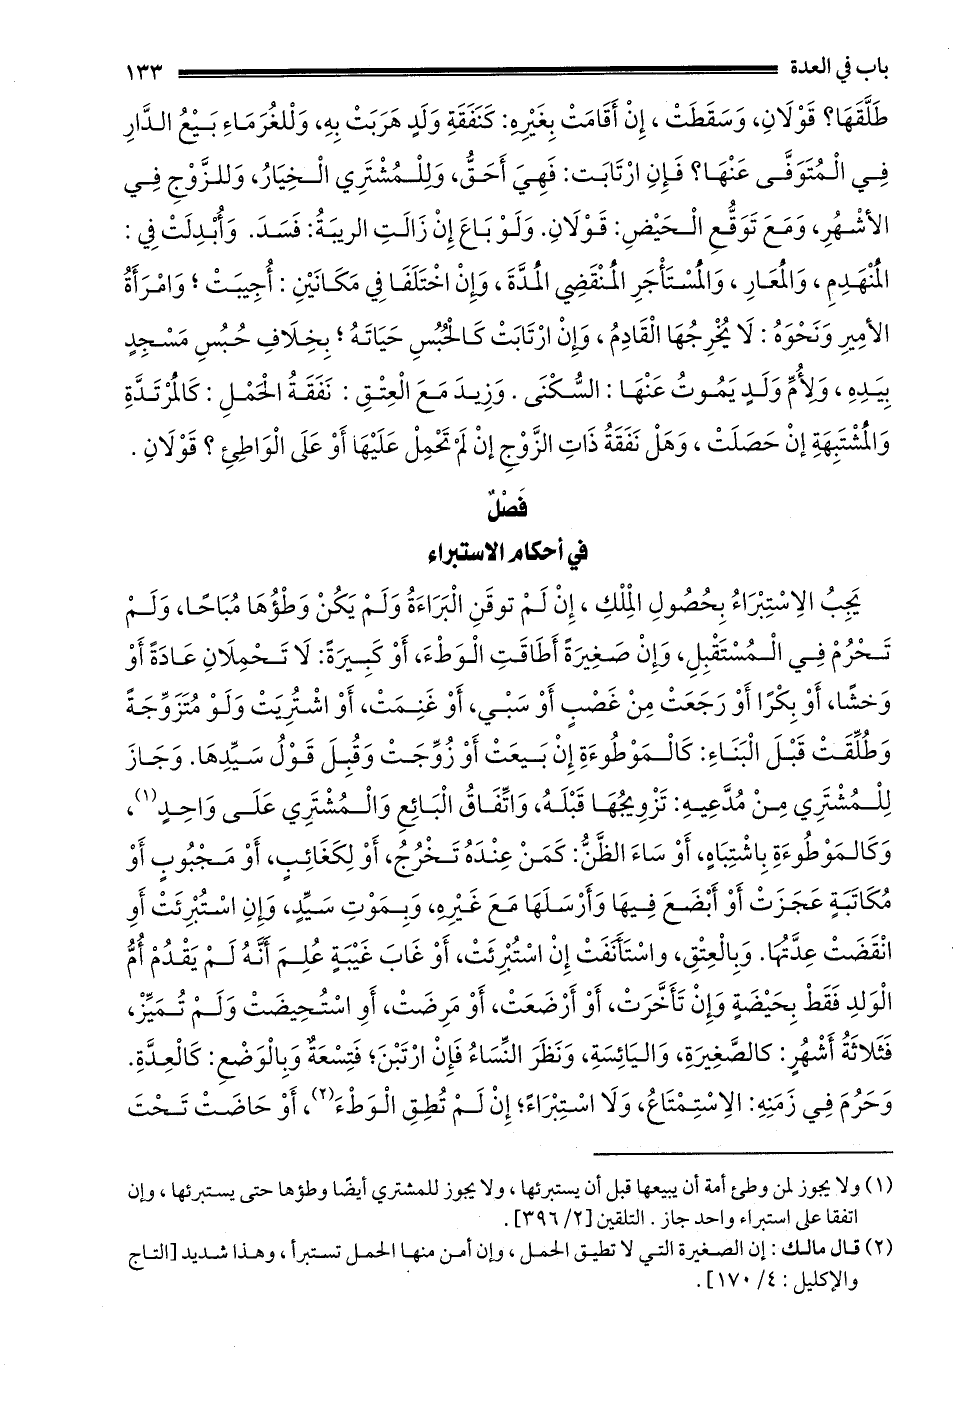 باب في العدة ١٣٣
طَلَّقَهَا؟ قَوْلَانِ، وَسَقَطَتْ، إِنْ أَقَامَتْ بِغَيْرِهِ: كَنَفَقَةِ وَلَدٍ هَرَبَتْ بِهِ، وَلِلْغُرَمَاءِ بَيْعُ الدَّارِ
فِي الْمُتَوَفَّى عَنْهَا؟ فَإِنِ ارْتَابَت: فَهِيَ أَحَقُّ، وَلِلْمُشْتَرِي الْخِيَارُ، وَللزَّوْجِ فِي
الأَشْهُرِ، وَمَعَ تَوَقُّعِ الْحَيْضِ: قَوْلَانِ. وَلَوْ بَاعَ إِنْ زَالَتِ الريبَةُ: فَسَدَ. وَأُبْدِلَتْ فِي:
الْمُنْهَدِمِ، وَالْمُعَارِ، وَالْمُسْتَأْجَرِ الْمُنْقَضِي الْمُدَّةَ، وَإِنْ اخْتَلَفَا فِي مَكَانَيْنِ: أُجِيبَتْ؛ وَامْرَأَةُ
الأَمِيرِ وَنَحْوَهُ: لَا يُخْرِجُهَا الْقَادِمُ، وَإِنْ ارْتَابَتْ كَالْحُبُسِ حَيَاتَهُ؛ بِخِلَافِ حُبُسِ مَسْجِدٍ
بِيَدِهِ، وَلِأُمِّ وَلَدٍ يَمُوتُ عَنْهَا: السُّكْنَى. وَزِيدَ مَعَ الْعِتْقِ: نَفَقَةُ الْحَمْلِ: كَالْمُرْتَدَّةِ
وَالْمُشْتَبِهَةِ إِنْ حَصَلَتْ، وَهَلْ نَفَقَةُ ذَاتِ الزَّوْجِ إِنْ لَمْ تَحْمِلْ عَلَيْهَا أَوْ عَلَى الْوَاطِئِ؟ قَوْلَانِ.
فَصْلٌ
في أحكام الاستبراء
يَجِبُ الاِسْتِبْرَاءُ بِحُصُولِ الْمِلْكِ، إِنْ لَمْ توقَنِ الْبَرَاءَةُ وَلَمْ يَكُنْ وَطْؤُهَا مُبَاحًا، وَلَمْ
تَحْرُمْ فِي الْمُسْتَقْبِلِ، وَإِنْ صَغِيرَةً أَطَاقَتِ الْوَطْءَ، أَوْ كَبِيرَةً: لَا تَحْمِلَانِ عَادَةً أَوْ
وَخْشًا، أَوْ بِكْرًا أَوْ رَجَعَتْ مِنْ غَصْبٍ أَوْ سَبْيٍ، أَوْ غَنِمَتْ، أَوْ اشْتُرِيَتْ وَلَوْ مُتَزَوِّجَةً
وَطُلِّقَتْ قَبْلَ الْبَنَاءِ: كَالْمَوْطُوءَةِ إِنْ بَيعَتْ أَوْ زُوِّجَتْ وَقُبِلَ قَوْلُ سَيِّدِهَا. وَجَازَ
لِلْمُشْتَرِي مِنْ مُدَّعِيهِ: تَزْوِيجُهَا قَبْلَهُ، وَاتِّفَاقُ الْبَائِعِ وَالْمُشْتَرِي عَلَى وَاحِدٍ(١)،
وَكَالمَوْطُوءَةِ بِاشْتِبَاهٍ، أَوْ سَاءَ الظَّنُّ: كَمَنْ عِنْدَهُ تَخْرُجُ، أَوْ لِكَغَائِبٍ، أَوْ مَجْبُوبٍ أَوْ
مُكَاتَبَةٍ عَجَزَتْ أَوْ أَبْضَعَ فِيهَا وَأَرْسَلَهَا مَعَ غَيْرِهِ، وَبِمَوْتِ سَيِّدٍ، وَإِنِ اسْتُبْرِئَتْ أَوِ
انْقَضَتْ عِدَّتُهَا. وَبِالْعِتْقِ، واسْتَأْنَفَتْ إِنْ اسْتُبْرِئَتْ، أَوْ غَابَ غَيْبَةٍ عُلِمَ أَنَّهُ لَمْ يَقْدُمْ أُمُّ
الْوَلَدِ فَقَطْ بِحَيْضَةٍ وَإِنْ تَأَخَّرَتْ، أَوْ أَرْضَعَتْ، أَوْ مَرِضَتْ، أَوِ اسْتُحِيضَتْ وَلَمْ تُمَيِّزْ،
فَثَلَاثَةُ أَشْهُرٍ: كالصَّغِيرَةِ، وَاليَائِسَةِ، وَنَظَرَ النِّسَاءُ فَإِنْ ارْتَبْنَ؛ فَتِسْعَةٌ وَبِالْوَضْعِ: كَالْعِدَّةِ.
وَحَرُمَ فِي زَمَنِهِ: الاِسْتِمْتَاعُ، وَلَا اسْتِبْرَاءُ؛ إِنْ لَمْ تُطِقِ الْوَطْءَ(٢)، أَوْ حَاضَتْ تَحْتَ
(١) ولا يجوز لمن وطئ أمة أن يبيعها قبل أن يستبرئها، ولا يجوز للمشتري أيضًا وطؤها حتى يستبرئها، وإن
اتفقا على استبراء واحد جاز. التلقين [٢/ ٣٩٦].
(٢) قال مالك: إن الصغيرة التي لا تطيق الحمل، وإن أمن منها الحمل تستبرأ، وهذا شديد [التاج
والإكليل: ٤/ ١٧٠].